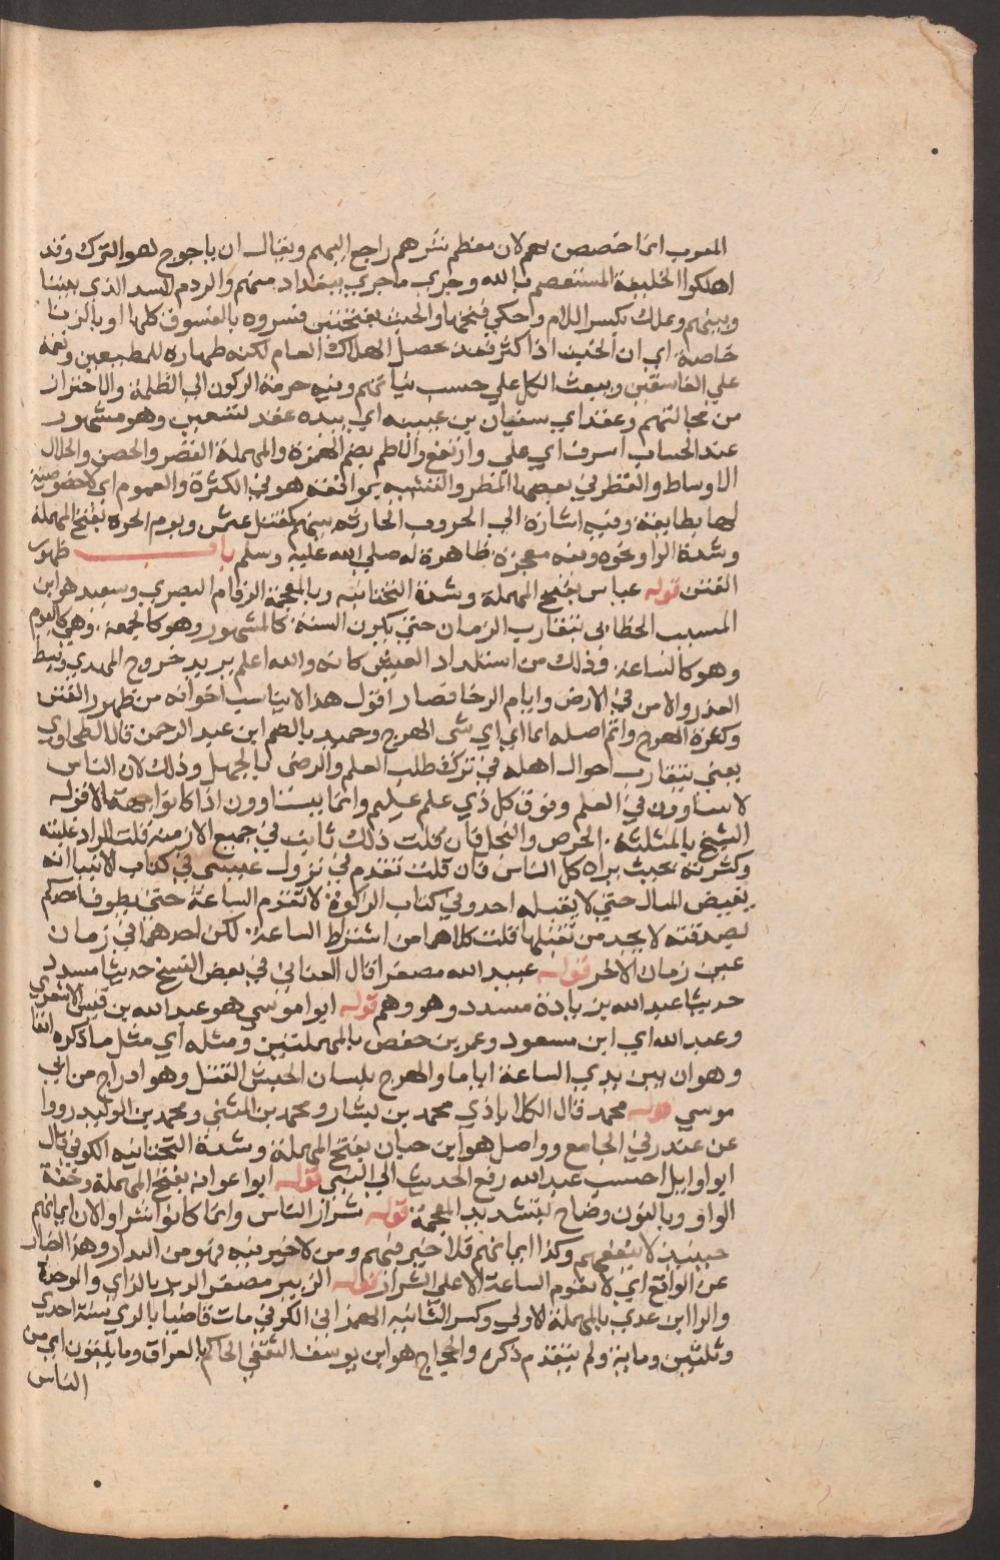 العرب انما خصص بهم لان معظم شرهم راجع اليهم ويقال ان ياجوج هو الترك وقد
اهلكوا الخليفة المستعصم بالله وجري ما جري ببغداد منهم والردم السد الذي بيننا
وبينهم وعلك بكسر اللام وحكي فتحها والخبث بفتحتين فسروه بالفسوق كلها او بالزنا
خاصة اي ان الخبث اذا كثر فقد حصل الهلاك العام لكنه طهارة للمطيعين ونقمة
علي الفاسقين ويبعث الكل علي حسب نياتهم وفيه حرمة الركون الي الظلمة والاحتراز
من مجالستهم وعقد اي سفيان بن عيينه اي بيده عقد تسعين وهو مشهور
عند الحساب اسرف اي علي وارتفع والاطم بضم الهمزة والمهملة القصر والحصن والخلال
الاوساط والقطر في بعضها المطر والتشبيه بمواقعه هو في الكثرة والعموم اي لا خصوصية
لها بطايفة وفيه اشارة الي الحروب الحادثة بينهم كقتل عثمن ويوم الحرة بفتح المهملة
وشدة الرا ونحوه وفيه معجزة ظاهرة له صلي الله عليه وسلم باب ظهور
الفتن قوله عياش بفتح المهملة وشدة التحتانيه وبالمعجمة الرقام البصري وسعيد هو ابن
المسيب الخطابي يتقارب الزمان حتي يكون السنة كالشهور وهو كالجمعة وهي كاليوم
وهو كالساعة وذلك من استلذاذ العيش كانه والله اعلم يريد خروج المهدي وبسط
العدل والامن في الارض وايام الرخا قصار اقول هذا لا يناسب اخواته من ظهور الفتن
وكثرة الهرج وايم اصله ايما اي اي شي الهرج وحميد بالضم ابن عبد الرحمن قال الطحاوي
يعني يتقارب احوال اهله في ترك طلب العلم والرضي بالجهل وذلك لان الناس
لا يتساوون في العلم وفوق كل ذي علم عليم وانما يتساوون اذا كانوا جهالا قوله
الشح بالمثلثة الحرص والبخل فان قلت ذلك ثابت في جميع الازمنة قلت المراد غلبته
وكثرته بحيث يراه كل الناس فان قلت تقدم في نزول عيسي في كتاب الانبيا انه
يفيض المال حتي لا يقبله احد وفي كتاب الزكوة لا تقوم الساعة حتي يطوف احدكم
بصدقته لا يجد من يقبلها قلت كلاهما من اشراط الساعة لكن احدهما في زمان
غير زمان الاخر قوله عبيد الله مصغرا قال الغساني في بعض النسخ حديثا مسدد
حدثنا عبد الله بزيادة مسدد وهو وهم قوله ابوا موسي هو عبد الله بن قيس الاشعري
وعبد الله اي ابن مسعود وعمر بن حفص بالمهملتين ومثله اي مثل ما ذكره انفا
وهو ان بين يدي الساعة اياما والهرج بلسان الحبش القتل وهو ادراج من ابي
موسي قوله محمد قال الكلاباذي محمد بن بشار ومحمد بن المثني ومحمد بن الوليد رووا
عن غندر في الجامع وواصل هو ابن حيان بفتح المهملة وشدة التحتانيه الكوفي قال
ابوا وايل احسب عبد الله رفع الحديث الي النبي قوله ابوا عوانه بفتح المهملة وخفة
الواو وبالنون وضاح بتشديد المعجمة قوله شرار الناس وانما كانوا اشرارا لان ايمانهم
حينيذ لا ينفعهم وكذا ايمانهم فلا خير فيهم ومن لا خير فيه فهو من الشرار وهذا اخبار
عن الواقع اي لا تقوم الساعة الا علي الشرار قوله الزبير مصغر الزبر بالزاي والموحدة
والرا ابن عدي بالمهملة الاولي وكسر الثانيه الهمداني الكوفي مات قاضيا بالري سنة احدي
وثلثين وماية ولم يتقدم ذكره والحجاج هو ابن يوسف الثقفي الحاكم بالعراق وما يلقون اي من
الناس